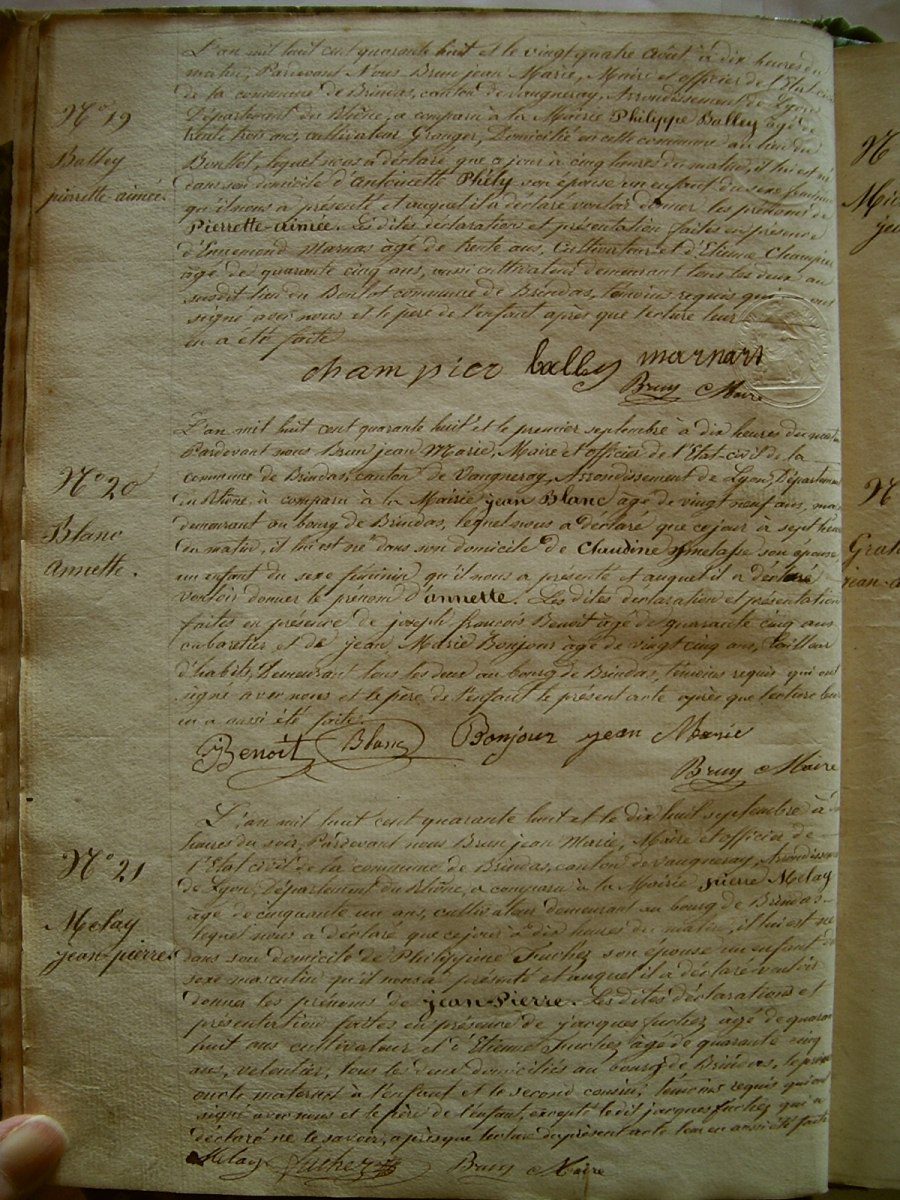 L'an mil huit cent quarante huit et le vingt quatre Août à dix heures du
matin, Pardevant Nous Brun jean Marie, Maire et officier de l'Etat civil
de la commune de Brindas, canton de Vaugneray, Arrondissement de Lyon
Département du Rhône, a comparu à la Mairie Philippe Balley âgé de
trente trois ans, cultivateur Granger, Domicilié en cette commune au lieu du
Boulot, lequel nous a déclaré que ce jour à cinq heures du matin, il lui est né
dans son domicile d'Antoinette Phily son épouse un enfant du sexe féminin
qu'il nous a présenté et auquel il a déclaré vouloir donner les prénoms de
Pierrette-aimée. Les dites déclarations et présentation faites en présence
d'Ennemond Marnas âgé de trente ans, Cultivateur et d'Etienne Champier
âgé de quarante cinq ans, aussi cultivateur demeurant tous les deux au
susdit lieu du Boulot commune de Brindas, témoins requis qui ont
signé avec nous et le père de l'enfant après que lecture leur
en a été faite
N° 19
Balley
pierrette-aimée.
champier balley marnart
Brun Maire
L'an mil huit cent quarante huit et le premier septembre à dix heures du matin
Pardevant nous Brun jean Marie, Maire et officier de l'Etat civil de la
commune de Brindas, canton de Vaugneray, Arrondissement de Lyon, Département
du Rhône, a comparu à la Mairie jean Blanc âgé de vingt neuf ans,
demeurant au bourg de Brindas, lequel nous a déclaré que ce jour à sept heures
du matin, il lui est né dans son domicile de Claudine son épouse
un enfant du sexe féminin qu'il nous a présenté et auquel il a déclaré
vouloir donner le prénom d'annette. Les dites déclaration et présentation
faites en présence de joseph françois Benoit âgé de quarante cinq ans
cabaretier et de jean Marie Bonjour âgé de vingt cinq ans, tailleur
d'habits, Demeurant tous les deux au bourg de Brindas, témoins requis qui ont
signé avec nous et le père de l'enfant le présent acte après que lecture leur
en a aussi été faite.
N° 20
Blanc
annette.
Benoit Blanc Bonjour jean Marie
Brun Maire
L'an mil huit cent quarante huit et le dix huit septembre à
heures du soir, Pardevant nous Brun jean Marie, Maire et officier de
l'Etat civil de la commune de Brindas, canton de Vaugneray, Arrondissement
de Lyon, Département du Rhône, a comparu à la Mairie pierre Melay
âgé de cinquante un ans, cultivateur demeurant au bourg de Brindas
lequel nous a déclaré que ce jour à dix heures du matin, il lui est né
dans son domicile de Philippine Fuchez son épouse un enfant du
sexe masculin qu'il nous a présenté et auquel il a déclaré vouloir
donner les prénoms de jean-Pierre. Les dites déclarations et
présentation faites en présence de jacques fuchez âgé de quarante
huit ans cultivateur et d'Etienne Fuchez âgé de quarante cinq
ans, veloutier, tous les deux domiciliés au bourg de Brindas, le premier
oncle maternel à l'enfant et le second cousin, témoins requis qui ont
signé avec nous et le père de l'enfant, excepté le dit jacques fuchez qui a
déclaré ne le savoir, après que lecture du présent acte leur en aussi été faite
N° 21
Melay
jean-pierre.
Melay fuchez Brun Maire